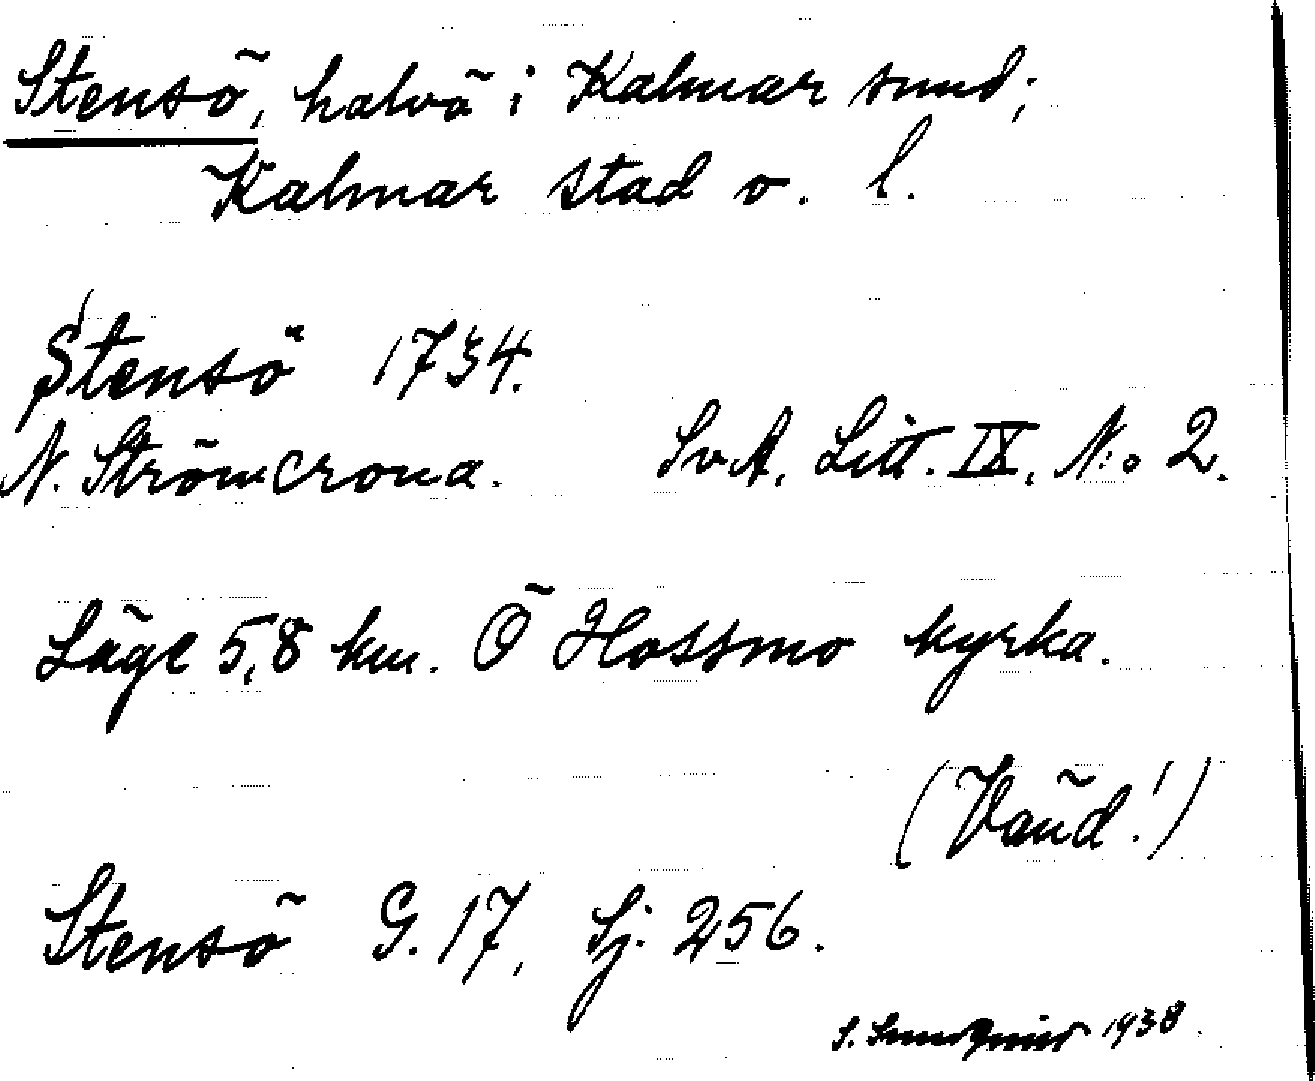 Stensö, halvö i Kalmar sund;
Kalmar stad o. l.
Stensö 1734.
N. Strömcrona. SvA, Litt. IX, N:o 2.
Läge 5,8 km. Ö Hossmo kyrka.
(Vänd!)
Stensö G. 17, Sj. 256.
S. Sundqvist 1938.